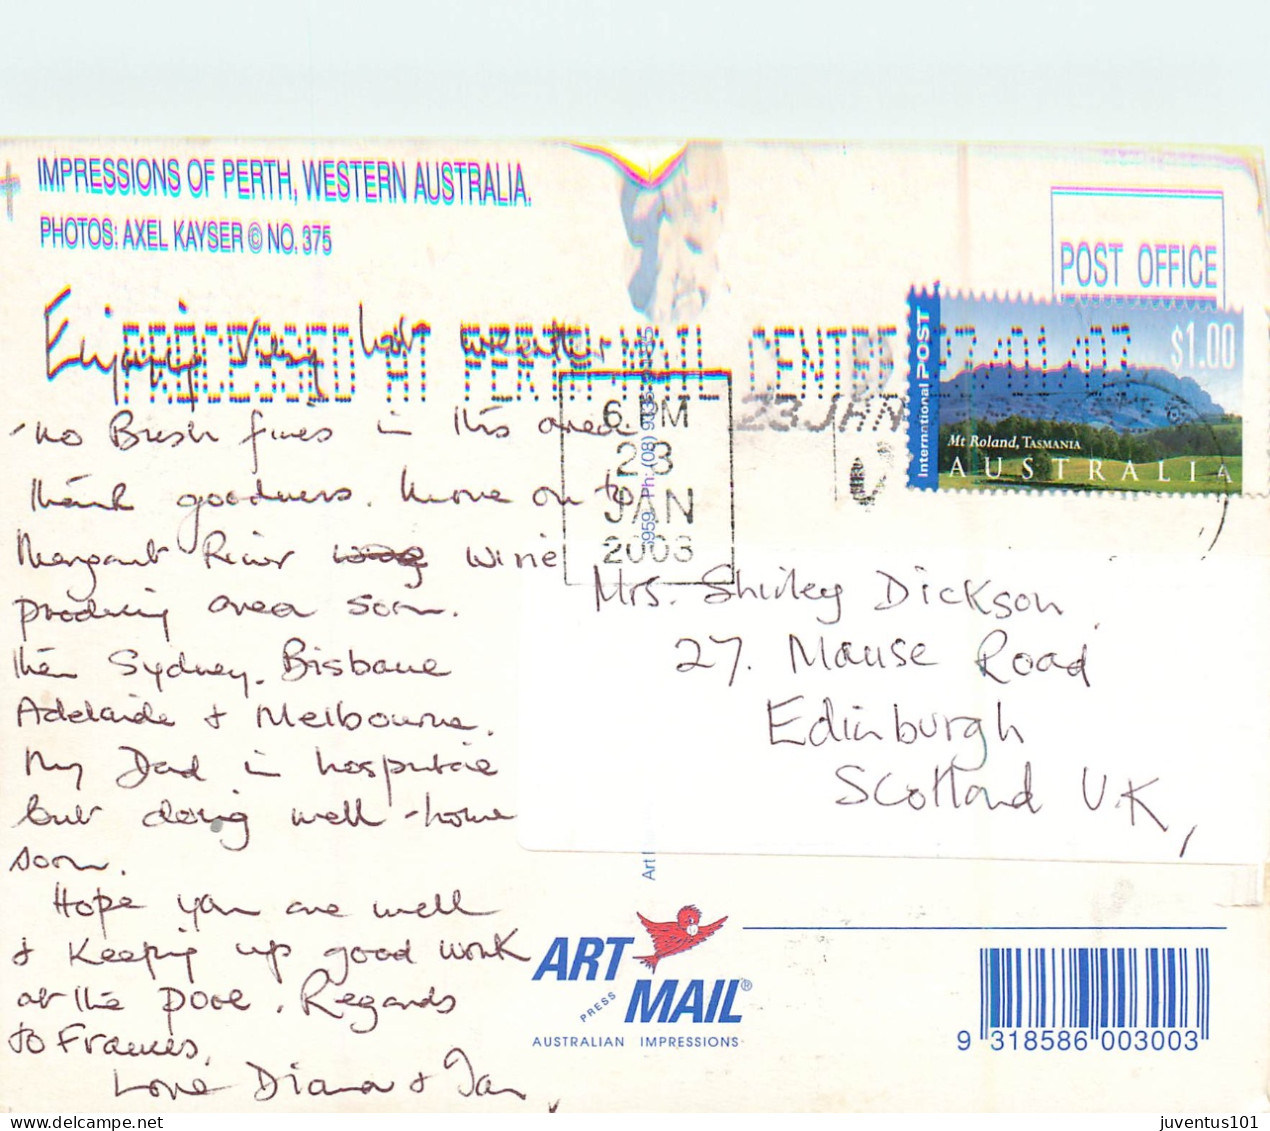 IMPRESSIONS OF PERTH, WESTERN AUSTRALIA.
PHOTOS: AXEL KAYSER © NO. 375
POST OFFICE
PROCESSED AT PERTH MAIL CENTRE
International POST
$1.00
Mt Roland, TASMANIA
AUSTRALIA
23 JAN
6 PM
23
JAN
2003
Enjoying very hot weather
- no Bush fires in this area
thank goodness. Move on to
Margaret River wine
producing area soon.
then Sydney. Bisbane
Adelaide & Melbourne.
My Dad in hospital
but doing well - home
soon.
Hope you are well
& keeping up good work
at the pool. Regards
to Frances,
Love Diana & Ian
Mrs. Shirley Dickson
27. Mause Road
Edinburgh
Scotland U.K,
Art
ART
PRESS
MAIL®
AUSTRALIAN IMPRESSIONS
9 318586 003003
juventus101